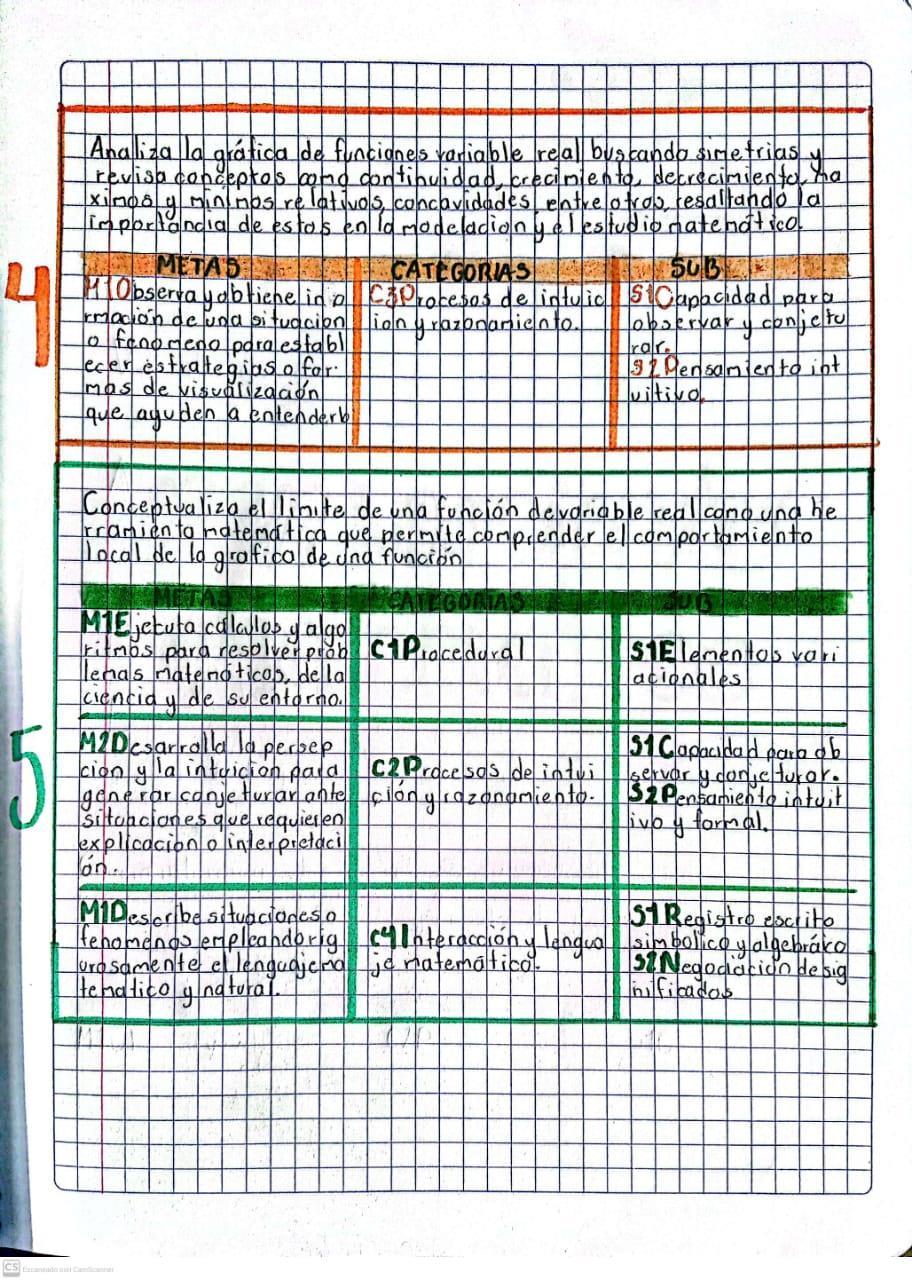 Analiza la gráfica de funciones variable real buscando simetrias y
revisa conceptos como continuidad, crecimiento, decrecimiento, ma
ximos y minimos relativos, concavidades, entre otros, resaltando la
importancia de estos en la modelacion y el estudio matemático.
4
METAS CATEGORIAS SUB
M1Observa y obtiene info
rmación de una situacion
o fenómeno para establ
ecer estrategias o for-
mas de visualización
que ayuden a entenderlo
C3Procesos de intuic
ion y razonamiento.
S1Capacidad para
observar y conjetu
rar.
S2Pensamiento int
uitivo.
Conceptualiza el limite de una función de variable real como una he
rramienta matemática que permite comprender el comportamiento
local de la grafica de una función
5
METAS CATEGORIAS SUB
M1Ejecuta cálculos y algo
ritmos para resolver prob
lemas matemáticos, de la
ciencia y de su entorno.
C1Procedural
S1Elementos vari
acionales
M2Desarrolla la persep
cion y la intuicion para
generar conjeturar ante
situaciones que requieren
explicacion o interpretaci
ón.
C2Procesos de intui
ción y razonamiento.
S1Capacidad para ob
servar y conjeturar.
S2Pensamiento intuit
ivo y formal.
M1Describe situaciones o
fenomenos empleando rig
urosamente el lenguaje ma
tematico y natural.
C4Interacción y lengua
je matemático.
S1Registro escrito
simbolico y algebráico
S2Negociacion de sig
nificados
CS Escaneado con CamScanner